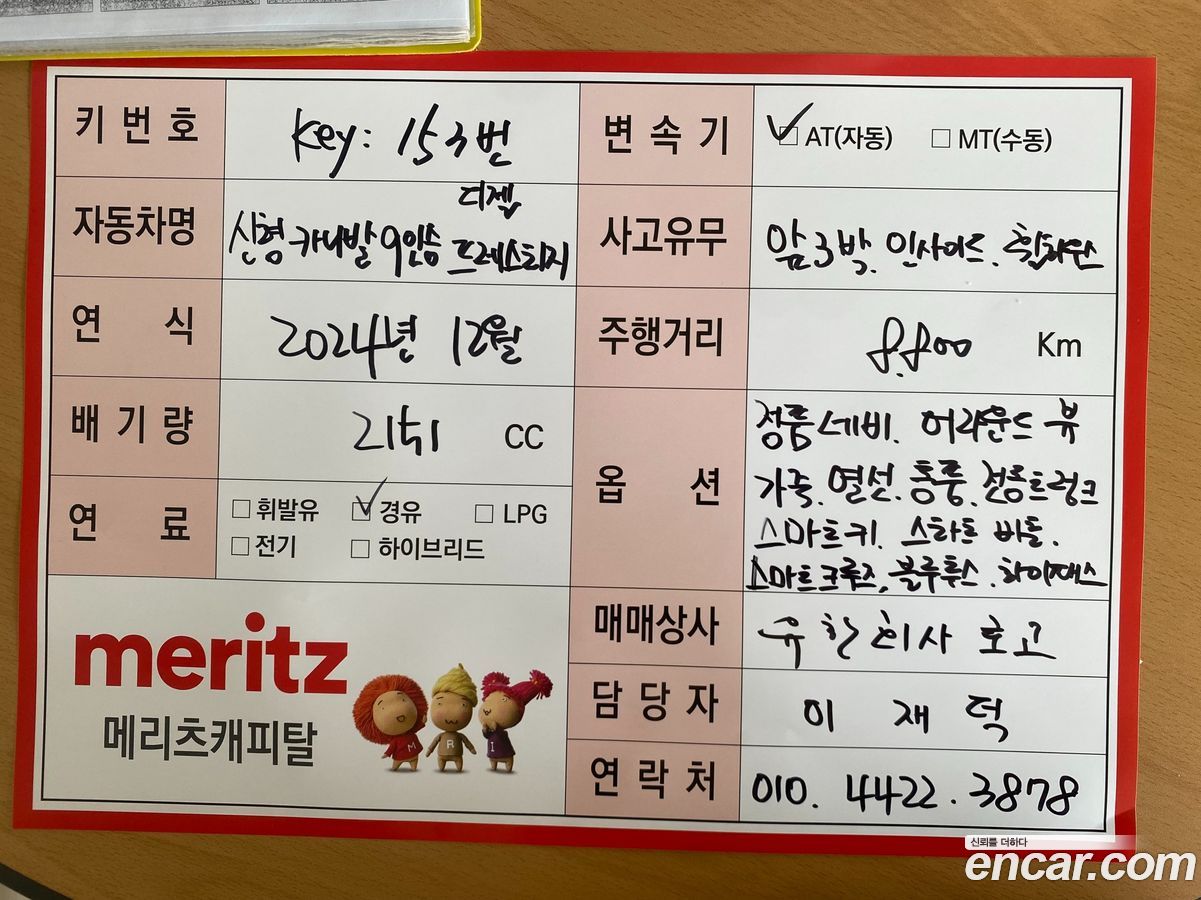 키 번 호
Key: 153번
변 속 기
☑ AT(자동) ☐ MT(수동)
자동차명
디젤
신형 카니발 9인승 프레스티지
사고유무
앞3박. 인사이드. 휠하우스
연 식
2024년 12월
주행거리
8.800 Km
배 기 량
2151 CC
옵 션
정품네비. 어라운드 뷰
가죽. 열선. 통풍. 전동트렁크
스마트키. 스타트 버튼.
스마트크루즈, 블루투스. 하이패스
연 료
☐ 휘발유 ☑ 경유 ☐ LPG
☐ 전기 ☐ 하이브리드
meritz
메리츠캐피탈
M R I
매매상사
유한회사 호고
담 당 자
이 재 덕
연 락 처
010. 4422. 3878
신뢰를 더하다
encar.com